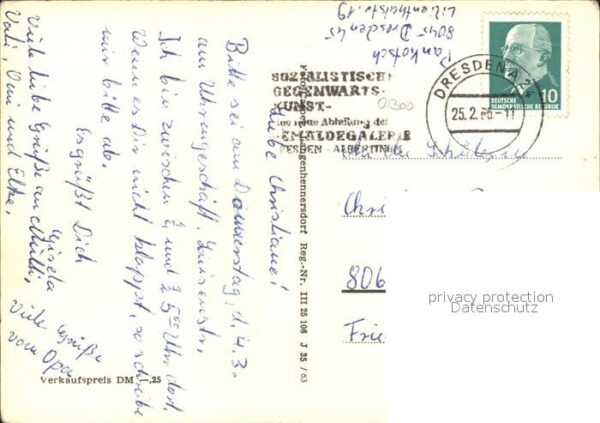 Pankotsch
8045 Dresden 45
Lilienthalstr. 19
SOZIALISTISCHE
GEGENWARTS-
KUNST-
neue Abteilung der
GEMÄLDEGALERIE
DRESDEN - ALBERTINUM
DRESDEN A 2
25.2.66-11
DEUTSCHE
DEMOKRATISCHE REPUBLIK
10
Liebe Christiane!
Bitte sei am Donnerstag, d. 4.3.
am Uhrengeschäft. Luisenstr.
Ich bin zwischen und 5 Uhr dort.
Wenn es Dir nicht klappt, so schreibe
mir bitte ab.
Es grüßt Dich
Gisela
Viele liebe Grüße an Mutti,
Vati, Omi und Elke.
Viele Grüße
vom Opa
An die Schülerin
Chri
806
Frie
langenhennersdorf Reg.-Nr. III 25 106 J 35 / 63
Verkaufspreis DM —,25
privacy protection
Datenschutz